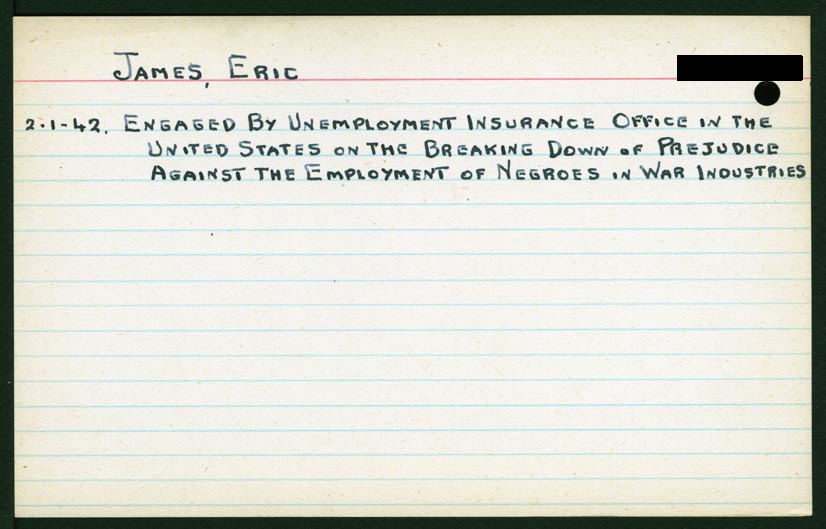 James, Eric
2.1-42. Engaged By Unemployment Insurance Office in the
United States on the Breaking Down of Prejudice
Against the Employment of Negroes in War Industries